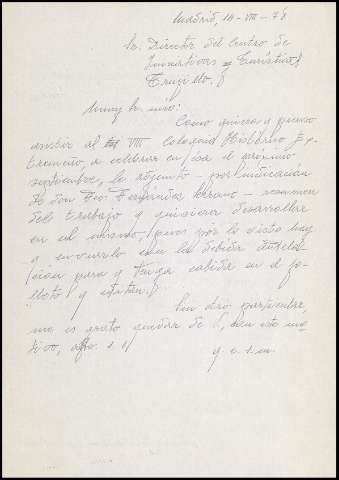 Madrid, 14-VIII-78
Sr. Director del Centro de
Iniciativas y Turísticas
Trujillo.
Muy Sr. mío:
Como quiera que pienso
asistir al VIII Coloquio Histórico Ex-
tremeño, a celebrar en esa el próximo
septiembre, le adjunto - por indicación
de don Fco. Fernández Serrano - resumen
del trabajo que quisiera desarrollar
en el mismo, pues por lo visto hay
que enviarlo con la debida antela-
ción para que tenga cabida en el fo-
lleto que editan.
Sin otro particular,
me es grato quedar de Ud. con este mo-
tivo, affo. s. s.
q. e. s. m.